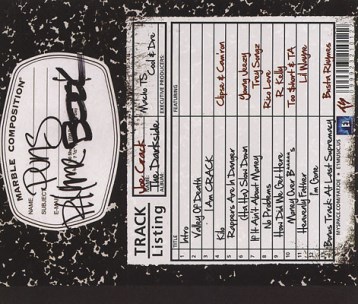 MARBLE COMPOSITION®
NAME
SUBJECT
Book
TRACK
Listing
Joe Crack
The Darkside
Macho TS
Cool & Dre
EXECUTIVE PRODUCERS
TITLE FEATURING
1 Intro
2 Valley Of Death
3 I Am CRACK
4 Kilo Clipse & Cam'ron
5 Rappers Are In Danger
6 (Ha Ha) Slow Down Young Jeezy
7 If It Ain't About Money Trey Songz
8 No Problems Rico Love
9 How Did We Get Here R. Kelly
10 Money Over B*****s Too $hort & TA
11 Heavenly Father Lil Wayne
12 I'm Gone
13 Bonus Track At Last Supremacy Busta Rhymes
MYSPACE.COM/FATJOE • E1MUSIC.US